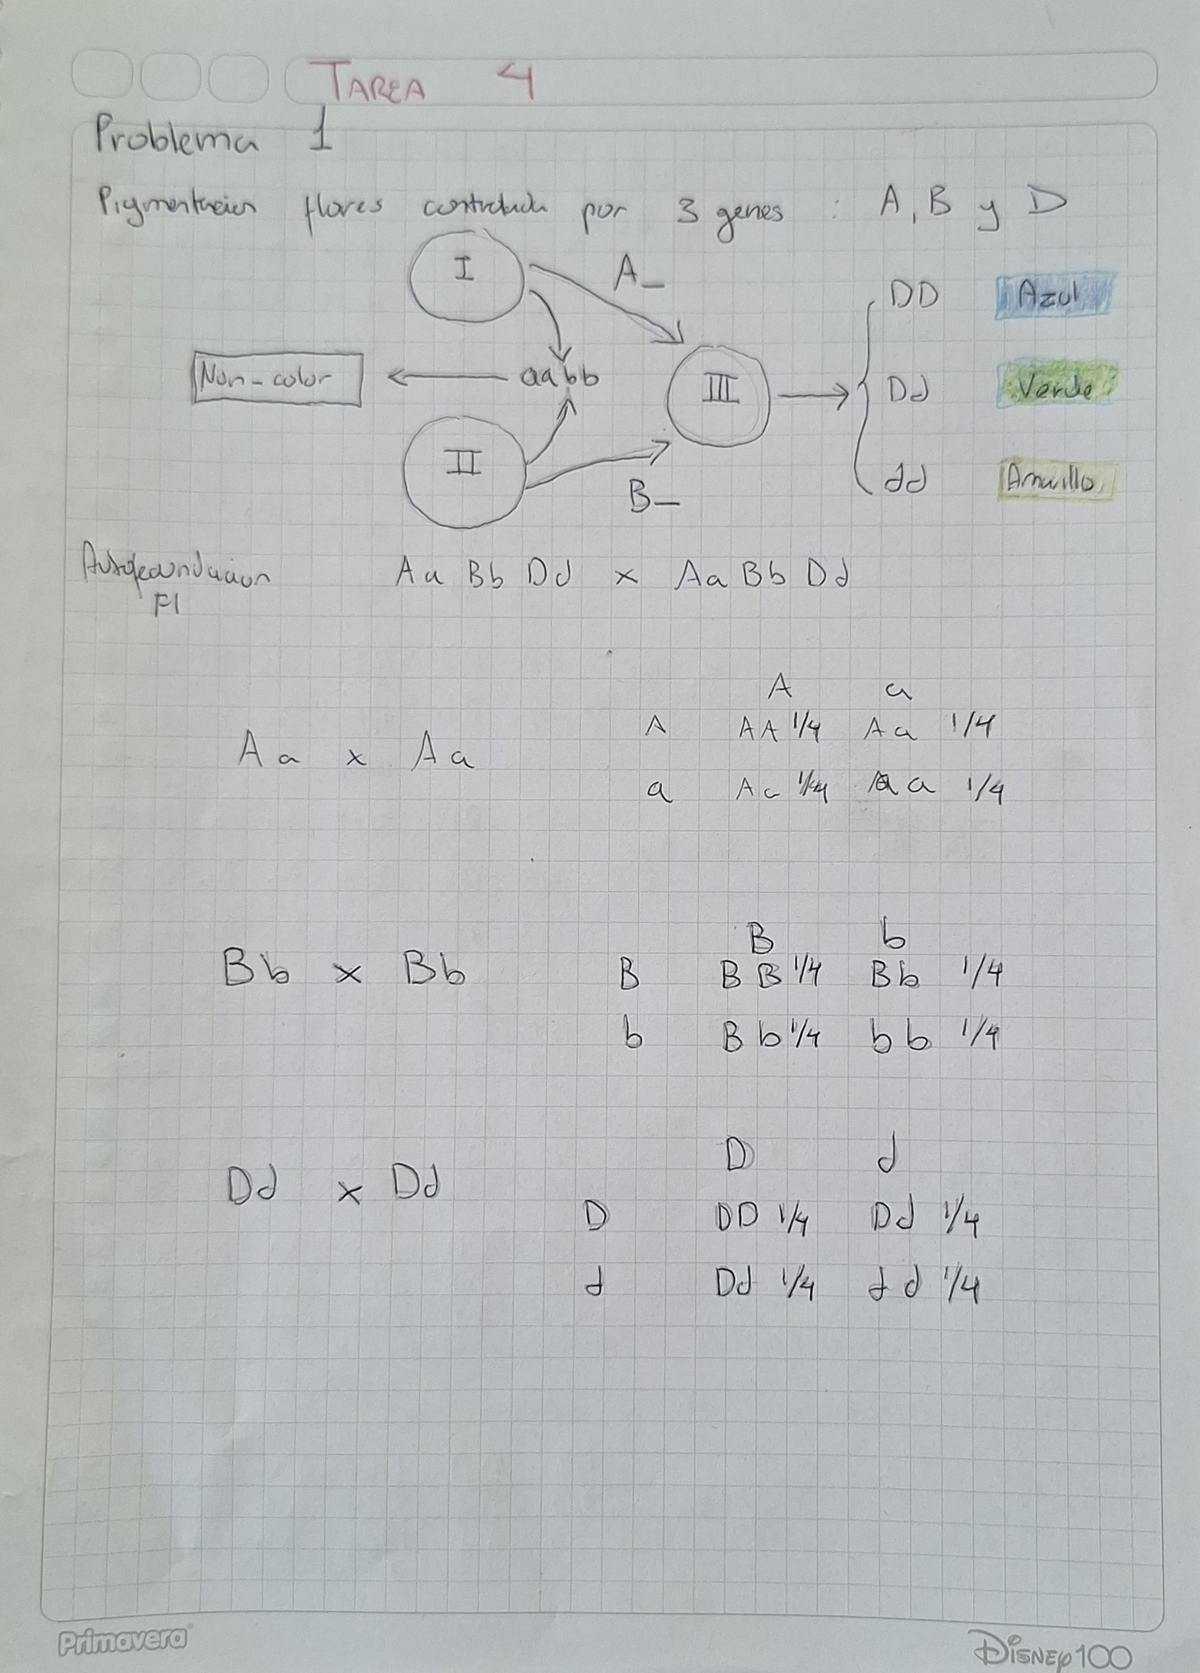 TAREA 4
Problema 1
Pigmentación flores controlada por 3 genes : A, B y D
I A_ DD Azul
Non-color aabb III Dd Verde
II B_ dd Amarillo
Autofecundacion Aa Bb Dd x Aa Bb Dd
F1
A a
Aa x Aa A AA 1/4 Aa 1/4
a Aa 1/4 aa 1/4
B b
Bb x Bb B BB 1/4 Bb 1/4
b Bb 1/4 bb 1/4
D d
Dd x Dd D DD 1/4 Dd 1/4
d Dd 1/4 dd 1/4
Primavera Disney100